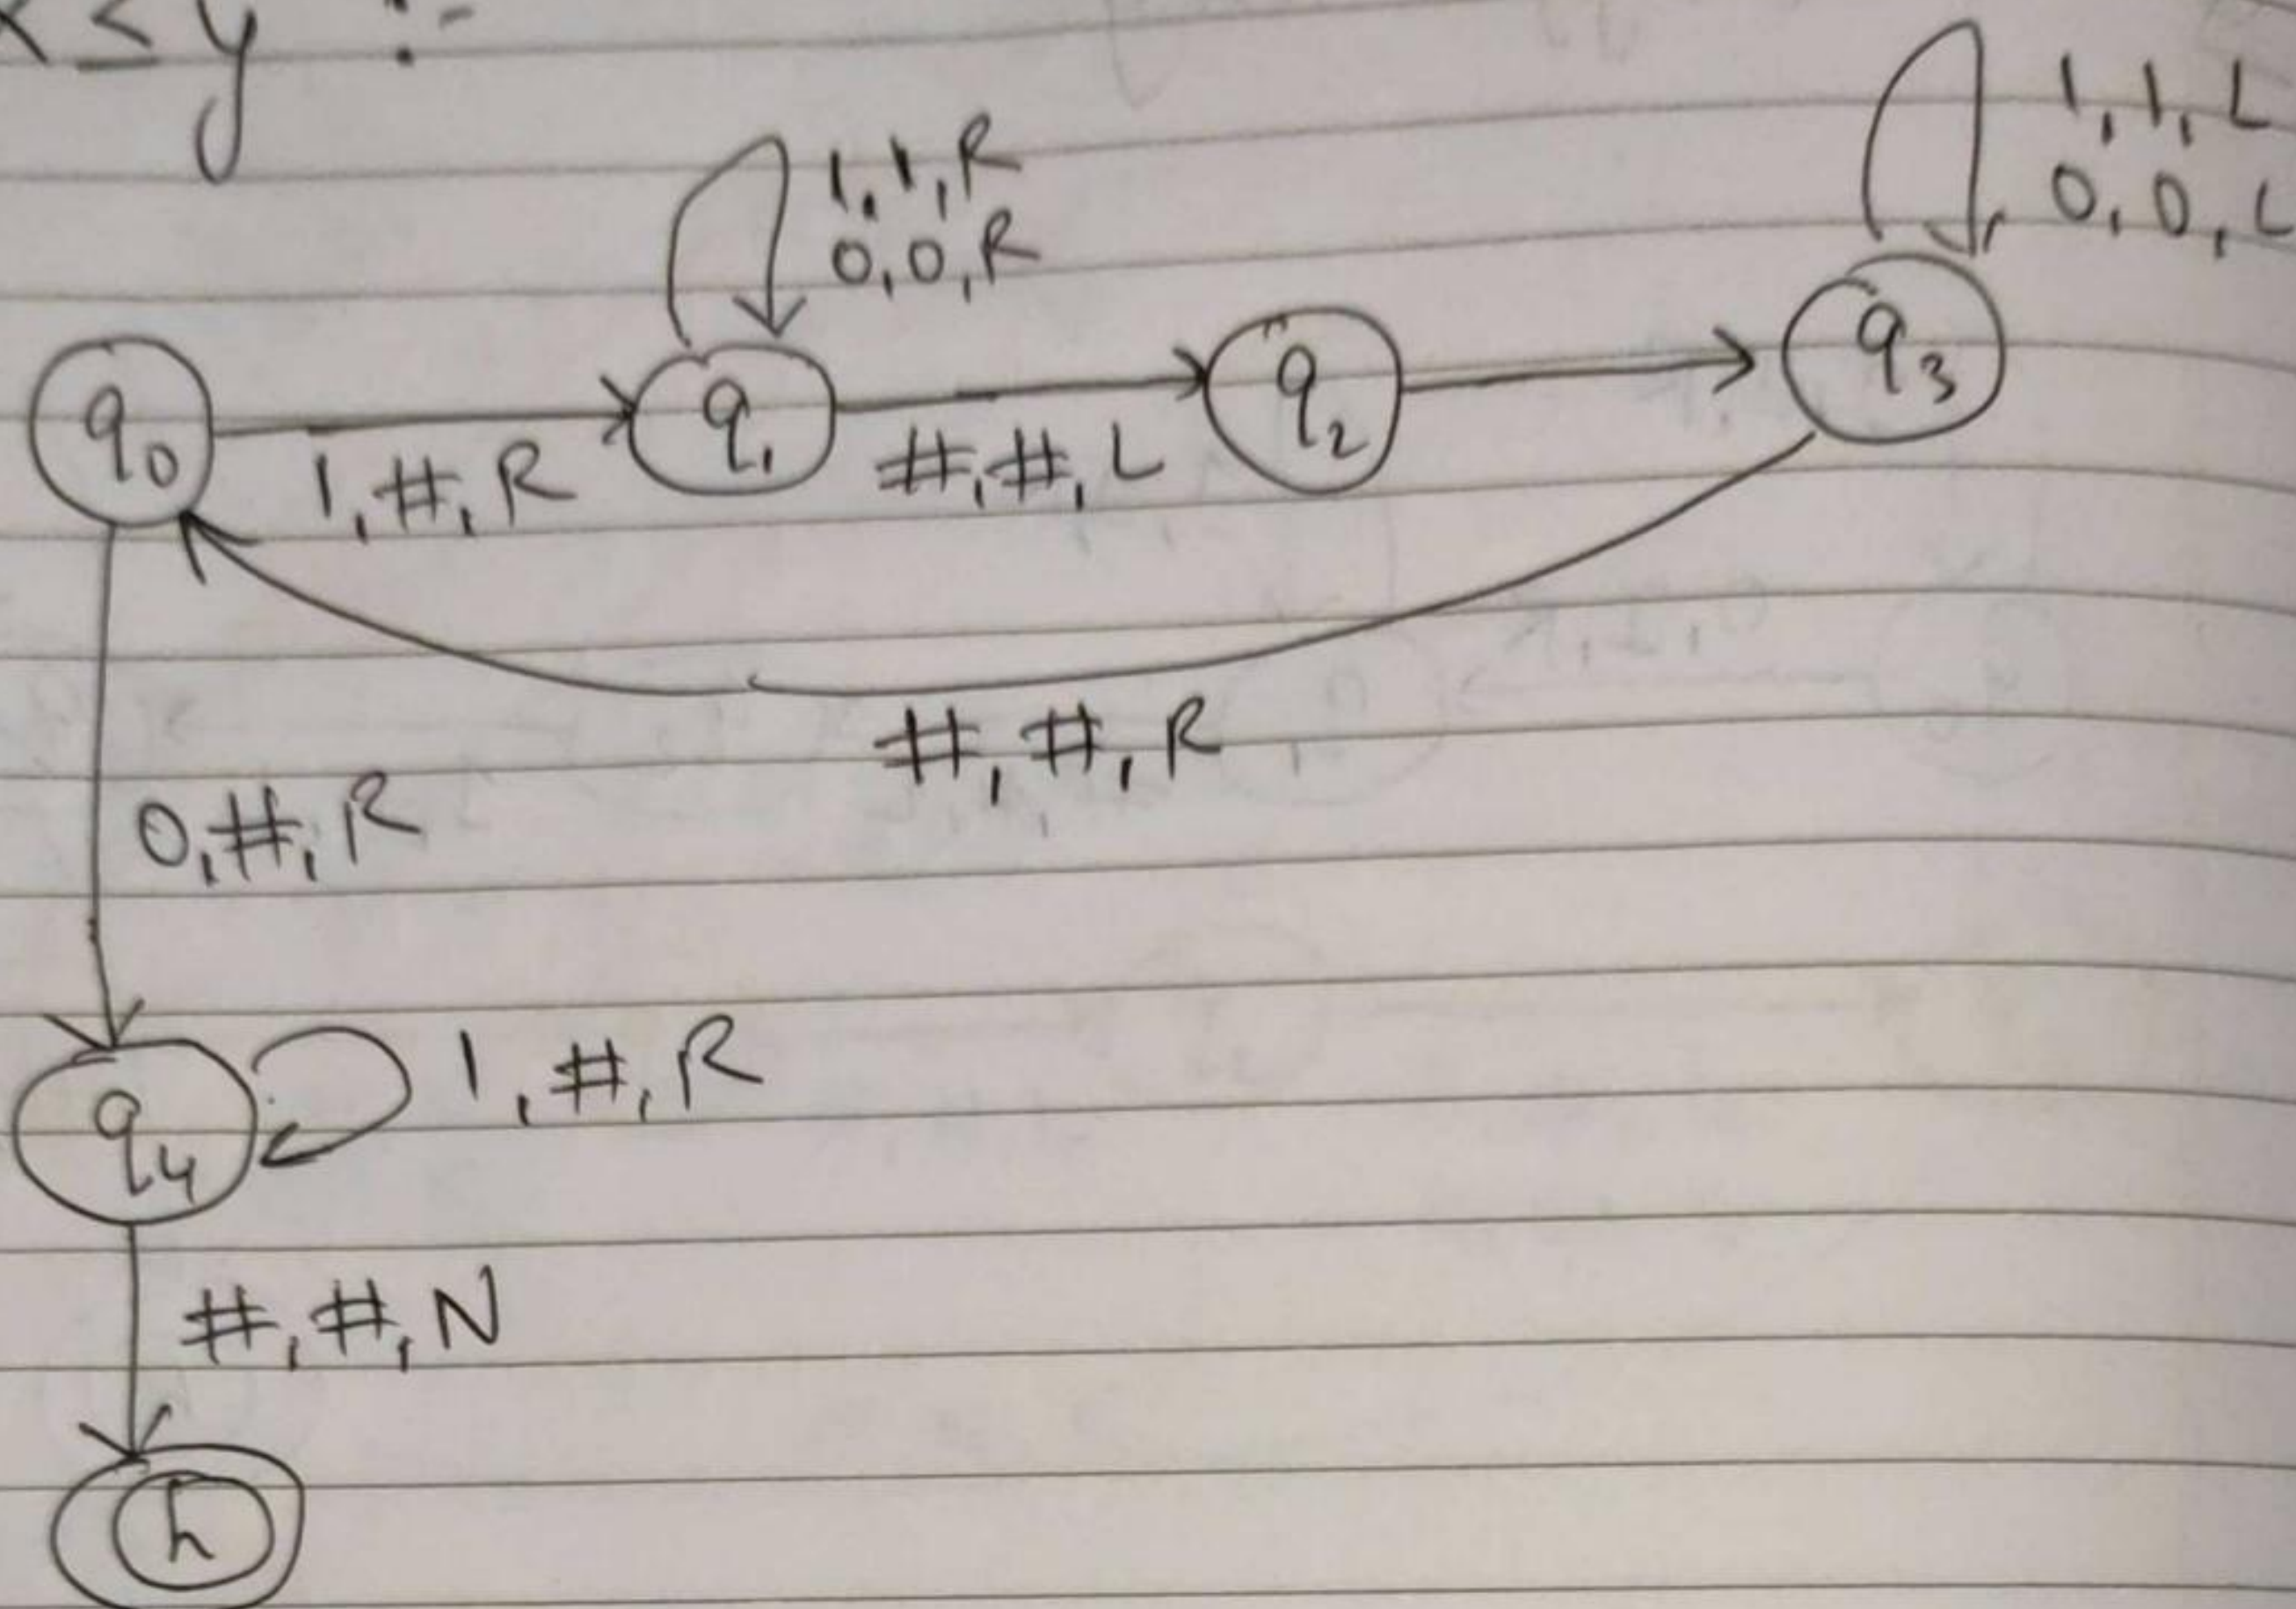 x ≤ y :-
1,1,R
0,0,R
1,1,L
0,0,L
q0
1,#,R
q1
#,#,L
q2
q3
#,#,R
0,#,R
q4
1,#,R
#,#,N
h